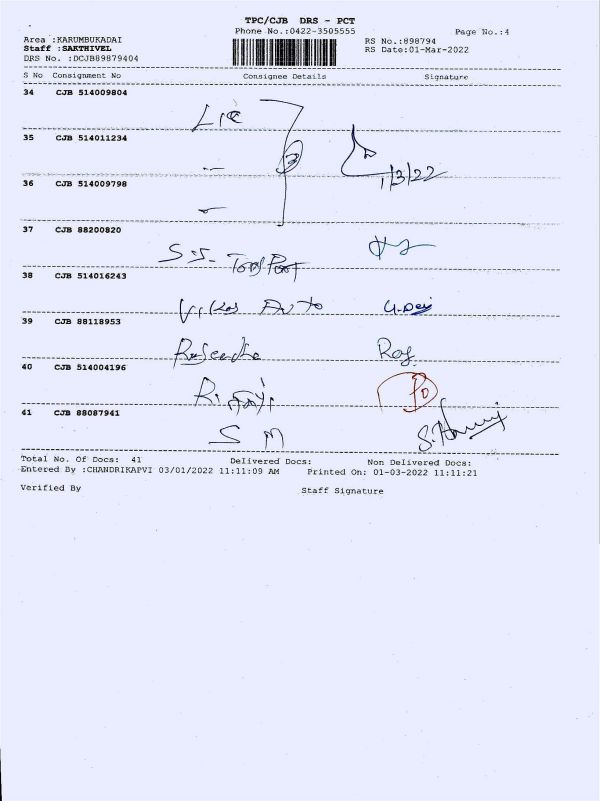 TPC/CJB DRS - PCT
Phone No.:0422-3505555 Page No.:4
Area :KARUMBUKADAI RS No.:898794
Staff :SAKTHIVEL RS Date:01-Mar-2022
DRS No. :DCJB89879404
S No Consignment No Consignee Details Signature
34 CJB 514009804
Lic
35 CJB 514011234
3
1/3/22
36 CJB 514009798
37 CJB 88200820
S.S-
38 CJB 514016243
Vikas Auto
39 CJB 88118953
Raj
40 CJB 514004196
R.
41 CJB 88087941
S M
Total No. Of Docs: 41 Delivered Docs: Non Delivered Docs:
Entered By :CHANDRIKAPVI 03/01/2022 11:11:09 AM Printed On: 01-03-2022 11:11:21
Verified By Staff Signature